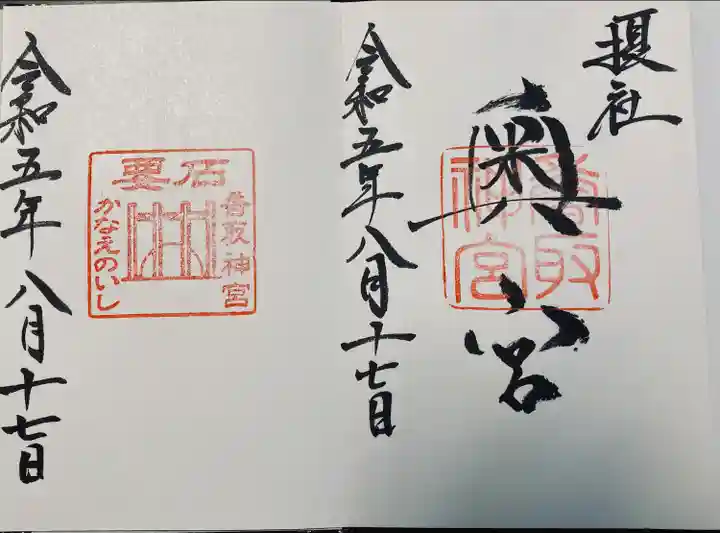 摂社
奥宮
香取神宮
令和五年八月十七日
要石
香取神宮
かなめのいし
令和五年八月十七日